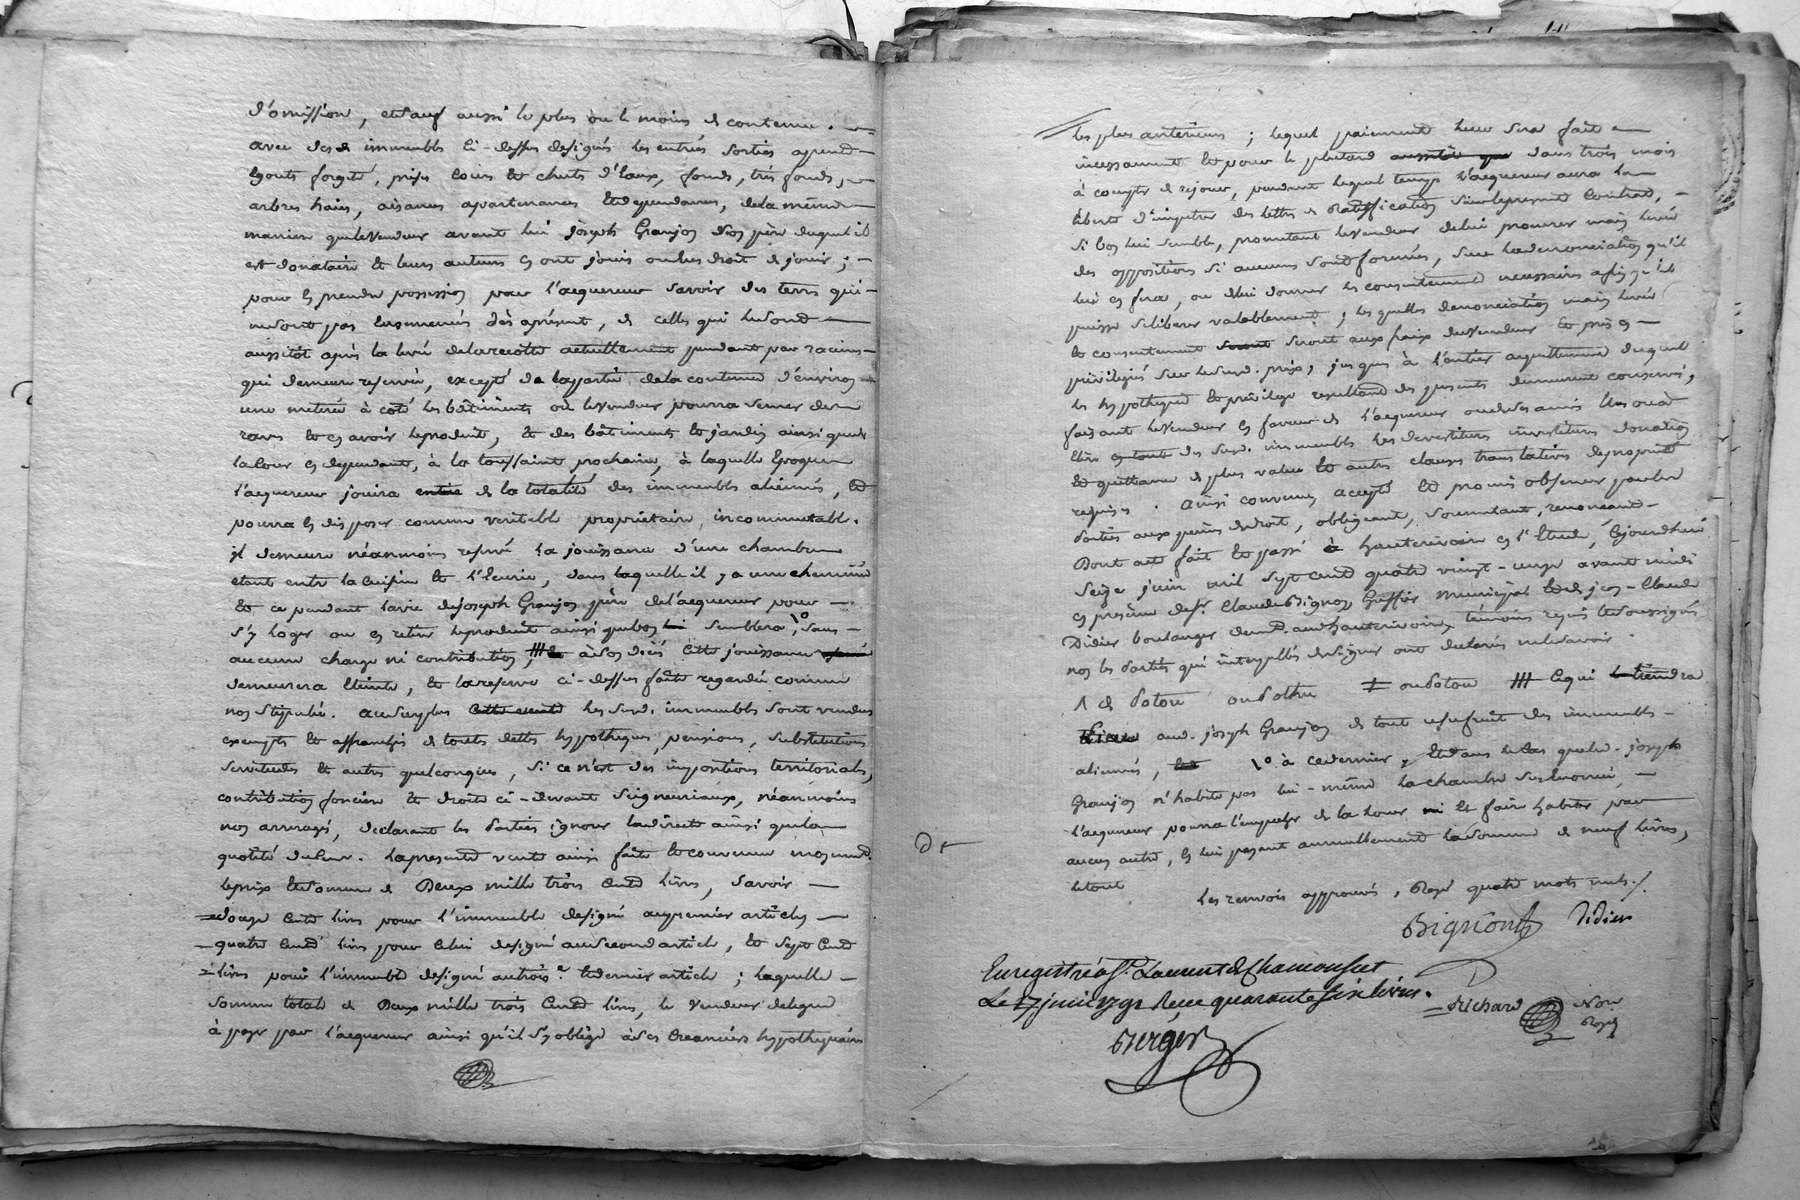 d'omission, et sauf aussi le plus ou le moins de contenu.
avec des d. immeubles ci-dessus designés les entrées sorties
egouts forgets, prises cours et chutes d'eaux, fonds, très fonds,
arbres haies, aisances appartenances et dependances, de la même
maniere que le vendeur avant lui joseph Granjon son père duquel il
est donataire et leurs auteurs en ont joui ou eu droit de jouir ;
pour en prendre possession par l'acquereur savoir des terres qui
ne sont pas ensemencées dès apresent, et celles qui le sont
aussitôt après la levée de la recolte actuellement pendante par racines
qui demeure reservée, excepté de la partie de la contenue d'environ
une meterée à côté les bâtiments où le vendeur pourra semer des
raves et en avoir le produit, et des bâtiments et jardin ainsi que de
la cour en dependant, à la toussaint prochaine, à laquelle epoque
l'acquereur jouira de la totalité des immeubles alienés, et
pourra en disposer comme veritable propriétaire incommutable.
il demeure néanmoins reservé la jouissance d'une chambre
etant entre la cuisine et l'ecurie, dans laquelle il y a une cheminée
et ce pendant la vie de Joseph Granjon père de l'acquereur pour
s'y loger ou en retirer le produit ainsi que bon semblera, sans
aucune charge ni contribution, à son decès cette jouissance
demeurera eteinte, et la reserve ci-dessus faite regardée comme
non stipulée. au surplus les susd. immeubles sont vendus
exempts et affranchis de toutes dettes hypotheques, pensions, substitutions
servitudes et autres quelconques, si ce n'est des impositions territoriales,
contribution fonciere et droits ci-devant seigneuriaux, néanmoins
non arreragés, declarant les parties ignorer la directe ainsi que la
quotité d'iceux. la presente vente ainsi faite et convenue moyennant
le prix et somme de Deux mille trois cents livres, savoir
douze cents livres pour l'immeuble designé au premier article
quatre cents livres pour celui designé au second article, et sept cents
livres pour l'immeuble designé au trois.e et dernier article ; laquelle
somme totale de Deux mille trois cents livres, le vendeur delegue
à payer par l'acquereur ainsi qu'il s'y oblige à ses creanciers hypothequaires
les plus anterieurs ; lequel paiement sera fait
incessamment et pour le plutard dans trois mois
à compter de ce jour, pendant lequel temps l'acquereur aura la
liberté d'impetrer des lettres de Ratiffication sur le present contrat,
si bon lui semble, promettant le vendeur de lui procurer main levée
des oppositions si aucunes sont formées, sur la denonciation qu'il
lui en fera, ou de lui donner les consentements necessaires afin qu'il
puisse se liberer valablement ; les quelles denonciation main levée
et consentement seront aux frais du vendeur et pris en
privilegié sur le susd. prix ; jusques à l'entier acquittement duquel
les hypotheques et privilege resultant des presentes demeurent conservés,
faisant le vendeur en faveur de l'acquereur ou de ses amis
des susd. immeubles les devestitures investitures donation
et quittance de plus value et autres clauses translatives de propriété
requises. Ainsi convenu, accepté et promis observer par les
parties aux peines de droit, obligeant, soumettant, renonceant
Dont acte fait et passé à hauterivoire en l'Etude, cejourdhui
Seize juin mil sept cent quatre vingt-onze avant midi
en presence de sr. Claude Bignon Greffier municipal et de jean-Claude
Didier boulanger demt. aud. hauterivoire, temoins requis et soussignés
non les parties qui interpellées de signer ont declaré ne le savoir.
aud. joseph Granjon de tout usufruit des immeubles
alienés, à ce dernier, et dans le cas que led. joseph
Granjon n'habite pas lui-même la chambre susenoncée,
l'acquereur pourra l'empecher de la louer ni la faire habiter par
aucun autre, en lui payant annuellement la somme de neuf livres,
le tout
Les renvois approuvés, Rayé quatre mots nuls.
Bignon Didier
Enregistré à St. Laurent de Chamousset
Le 17 juin 1791 Reçu quarante six livres.
Richard Nore
Royal
Berger